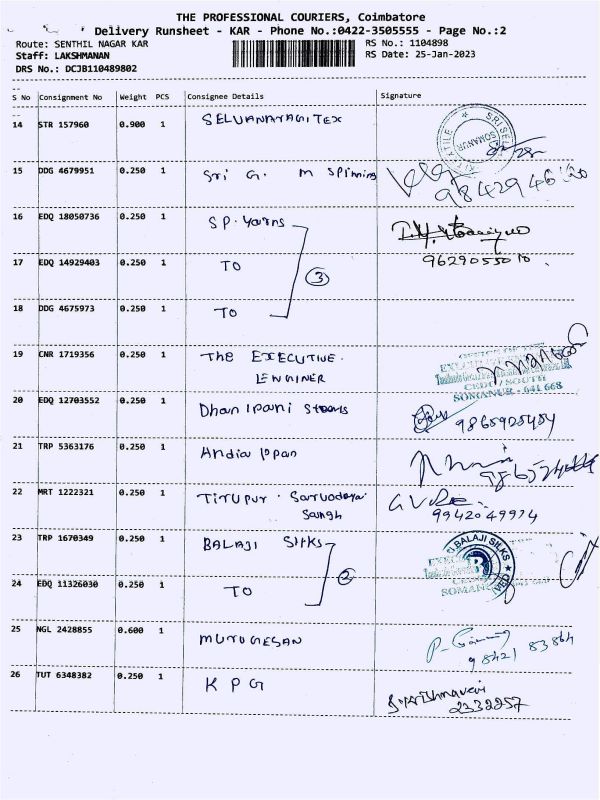 THE PROFESSIONAL COURIERS, Coimbatore
Delivery Runsheet - KAR - Phone No.:0422-3505555 - Page No.:2
Route: SENTHIL NAGAR KAR RS No.: 1104898
Staff: LAKSHMANAN RS Date: 25-Jan-2023
DRS No.: DCJB110489802
S No Consignment No Weight PCS Consignee Details Signature
14 STR 157960 0.900 1 SELVANAYAGI TEX
SOMANUR
15 DDG 4679951 0.250 1 Sri G. M Spinning
16 EDQ 18050736 0.250 1 SP. Yarns
17 EDQ 14929403 0.250 1 TO 3 9629055010
18 DDG 4675973 0.250 1 TO
19 CNR 1719356 0.250 1 The EXECUTIVE.
ENGINER
OFFICE OF THE
CEDC/SOUTH
SOMANUR - 641 668
20 EDQ 12703552 0.250 1 9865925454
21 TRP 5363176 0.250 1
22 MRT 1222321 0.250 1 Tirupur. Sarvodaya
Sangh
9942049974
23 TRP 1670349 0.250 1 BALAJI SILKS
BALAJI SILKS
B
24 EDQ 11326030 0.250 1 TO 2
25 NGL 2428855 0.600 1 MURUGESAN
98421 83864
26 TUT 6348382 0.250 1 K P G
2332257